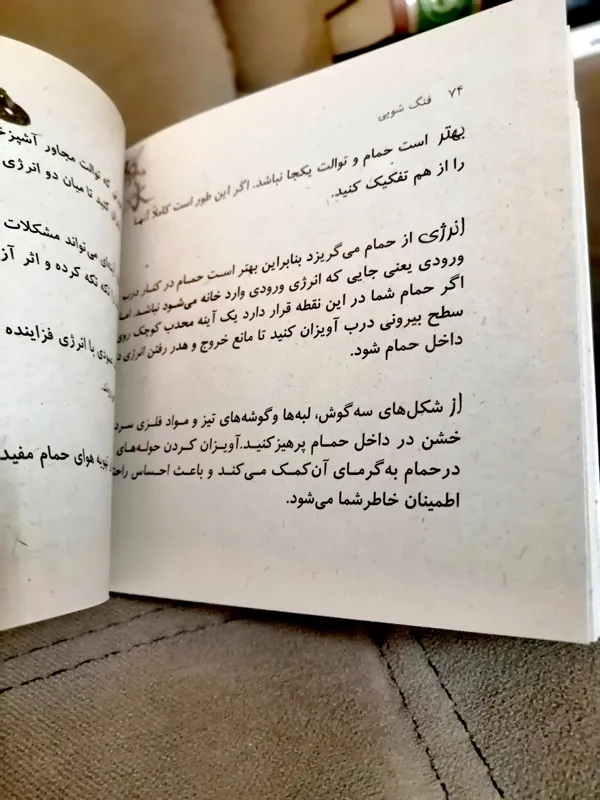 ۷۴ فنگ شویی
بهتر است حمام و توالت یکجا نباشد. اگر این طور است کاملاً آنها
را از هم تفکیک کنید.
انرژی از حمام می‌گریزد بنابراین بهتر است حمام در کنار درب
ورودی یعنی جایی که انرژی ورودی وارد خانه می‌شود نباشد. اما
اگر حمام شما در این نقطه قرار دارد یک آینه محدب کوچک روی
سطح بیرونی درب آویزان کنید تا مانع خروج و هدر رفتن انرژی
داخل حمام شود.
از شکل‌های سه‌گوش، لبه‌ها وگوشه‌های تیز و مواد فلزی سرد
خشن در داخل حمام پرهیزکنید.آویزان کردن حوله‌های
درحمام به‌گرمای آن‌کمک می‌کند و باعث احساس
اطمینان خاطرشما می‌شود.
که توالت مجاور
کنید تا میان دو انرژی
می‌تواند مشکلات
تکه کرده و اثر
با انرژی فزاینده
تهویه هوای حمام مفید